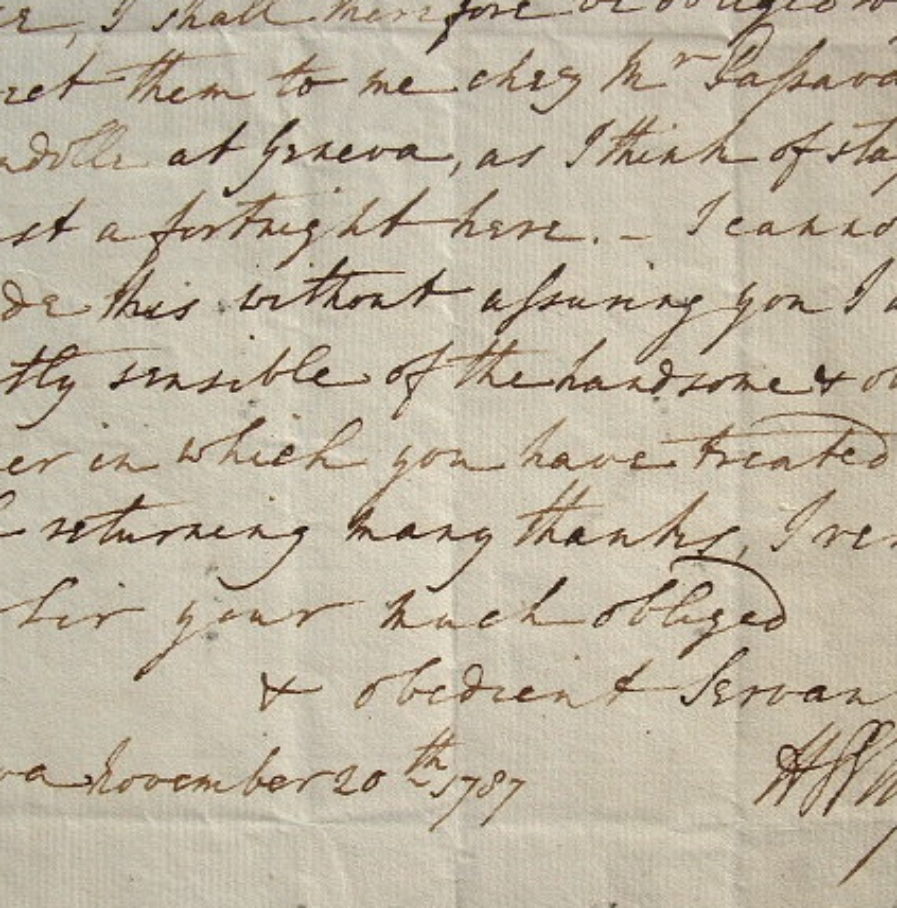 I shall therefore
them to me chez Mr Passava
at Geneva, as I think of sta
st a fortnight here. – I canno
de this without assuring you I a
tly sensible of the handsome & ob
er in which you have treated
returning many thanks, I rem
Sir your much obliged
& obedient Servan
va November 20th 1787